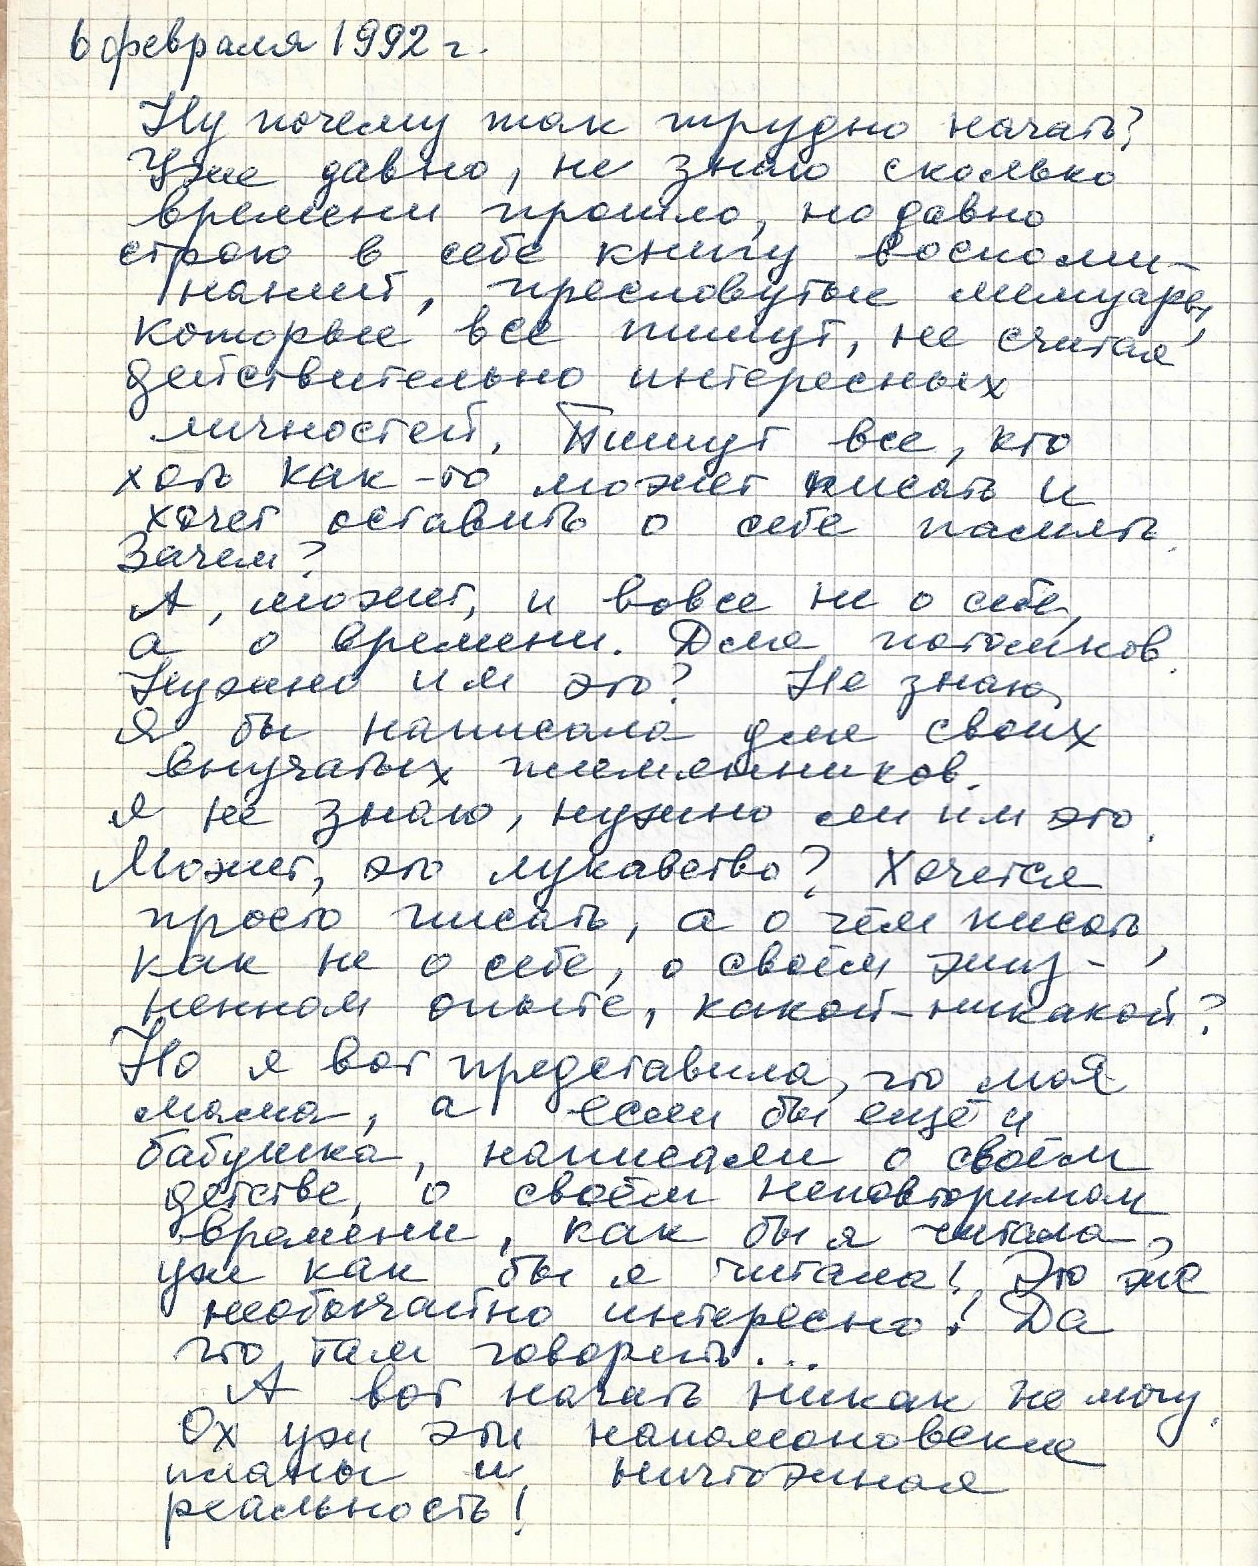 6 февраля 1992 г.
Ну почему так трудно начать?
Уже давно, не знаю сколько
времени прошло, но давно
строю в себе книгу воспоми-
наний, пресловутые мемуары,
которые все пишут, не считая
действительно интересных
личностей. Пишут все, кто
хоть как-то может писать и
хочет оставить о себе память.
Зачем?
А, может, и вовсе не о себе,
а о времени. Для потомков.
Нужно им это? Не знаю,
Я бы написала для своих
внучатых племянников.
Я не знаю, нужно ли им это.
Может, это лукавство? Хочется
просто писать, а о чём писать,
как не о себе, о своём жиз-
ненном опыте, какой-никакой?
Но я вот представила, что моя
мама, а если бы ещё и
бабушка, написали о своём
детстве, о своём неповторимом
времени, как бы я читала,
уж как бы я читала! Это же
необычайно интересно! Да
что там говорить...
А вот начать никак не могу.
Ох уж эти наполеоновские
планы и ничтожная
реальность!